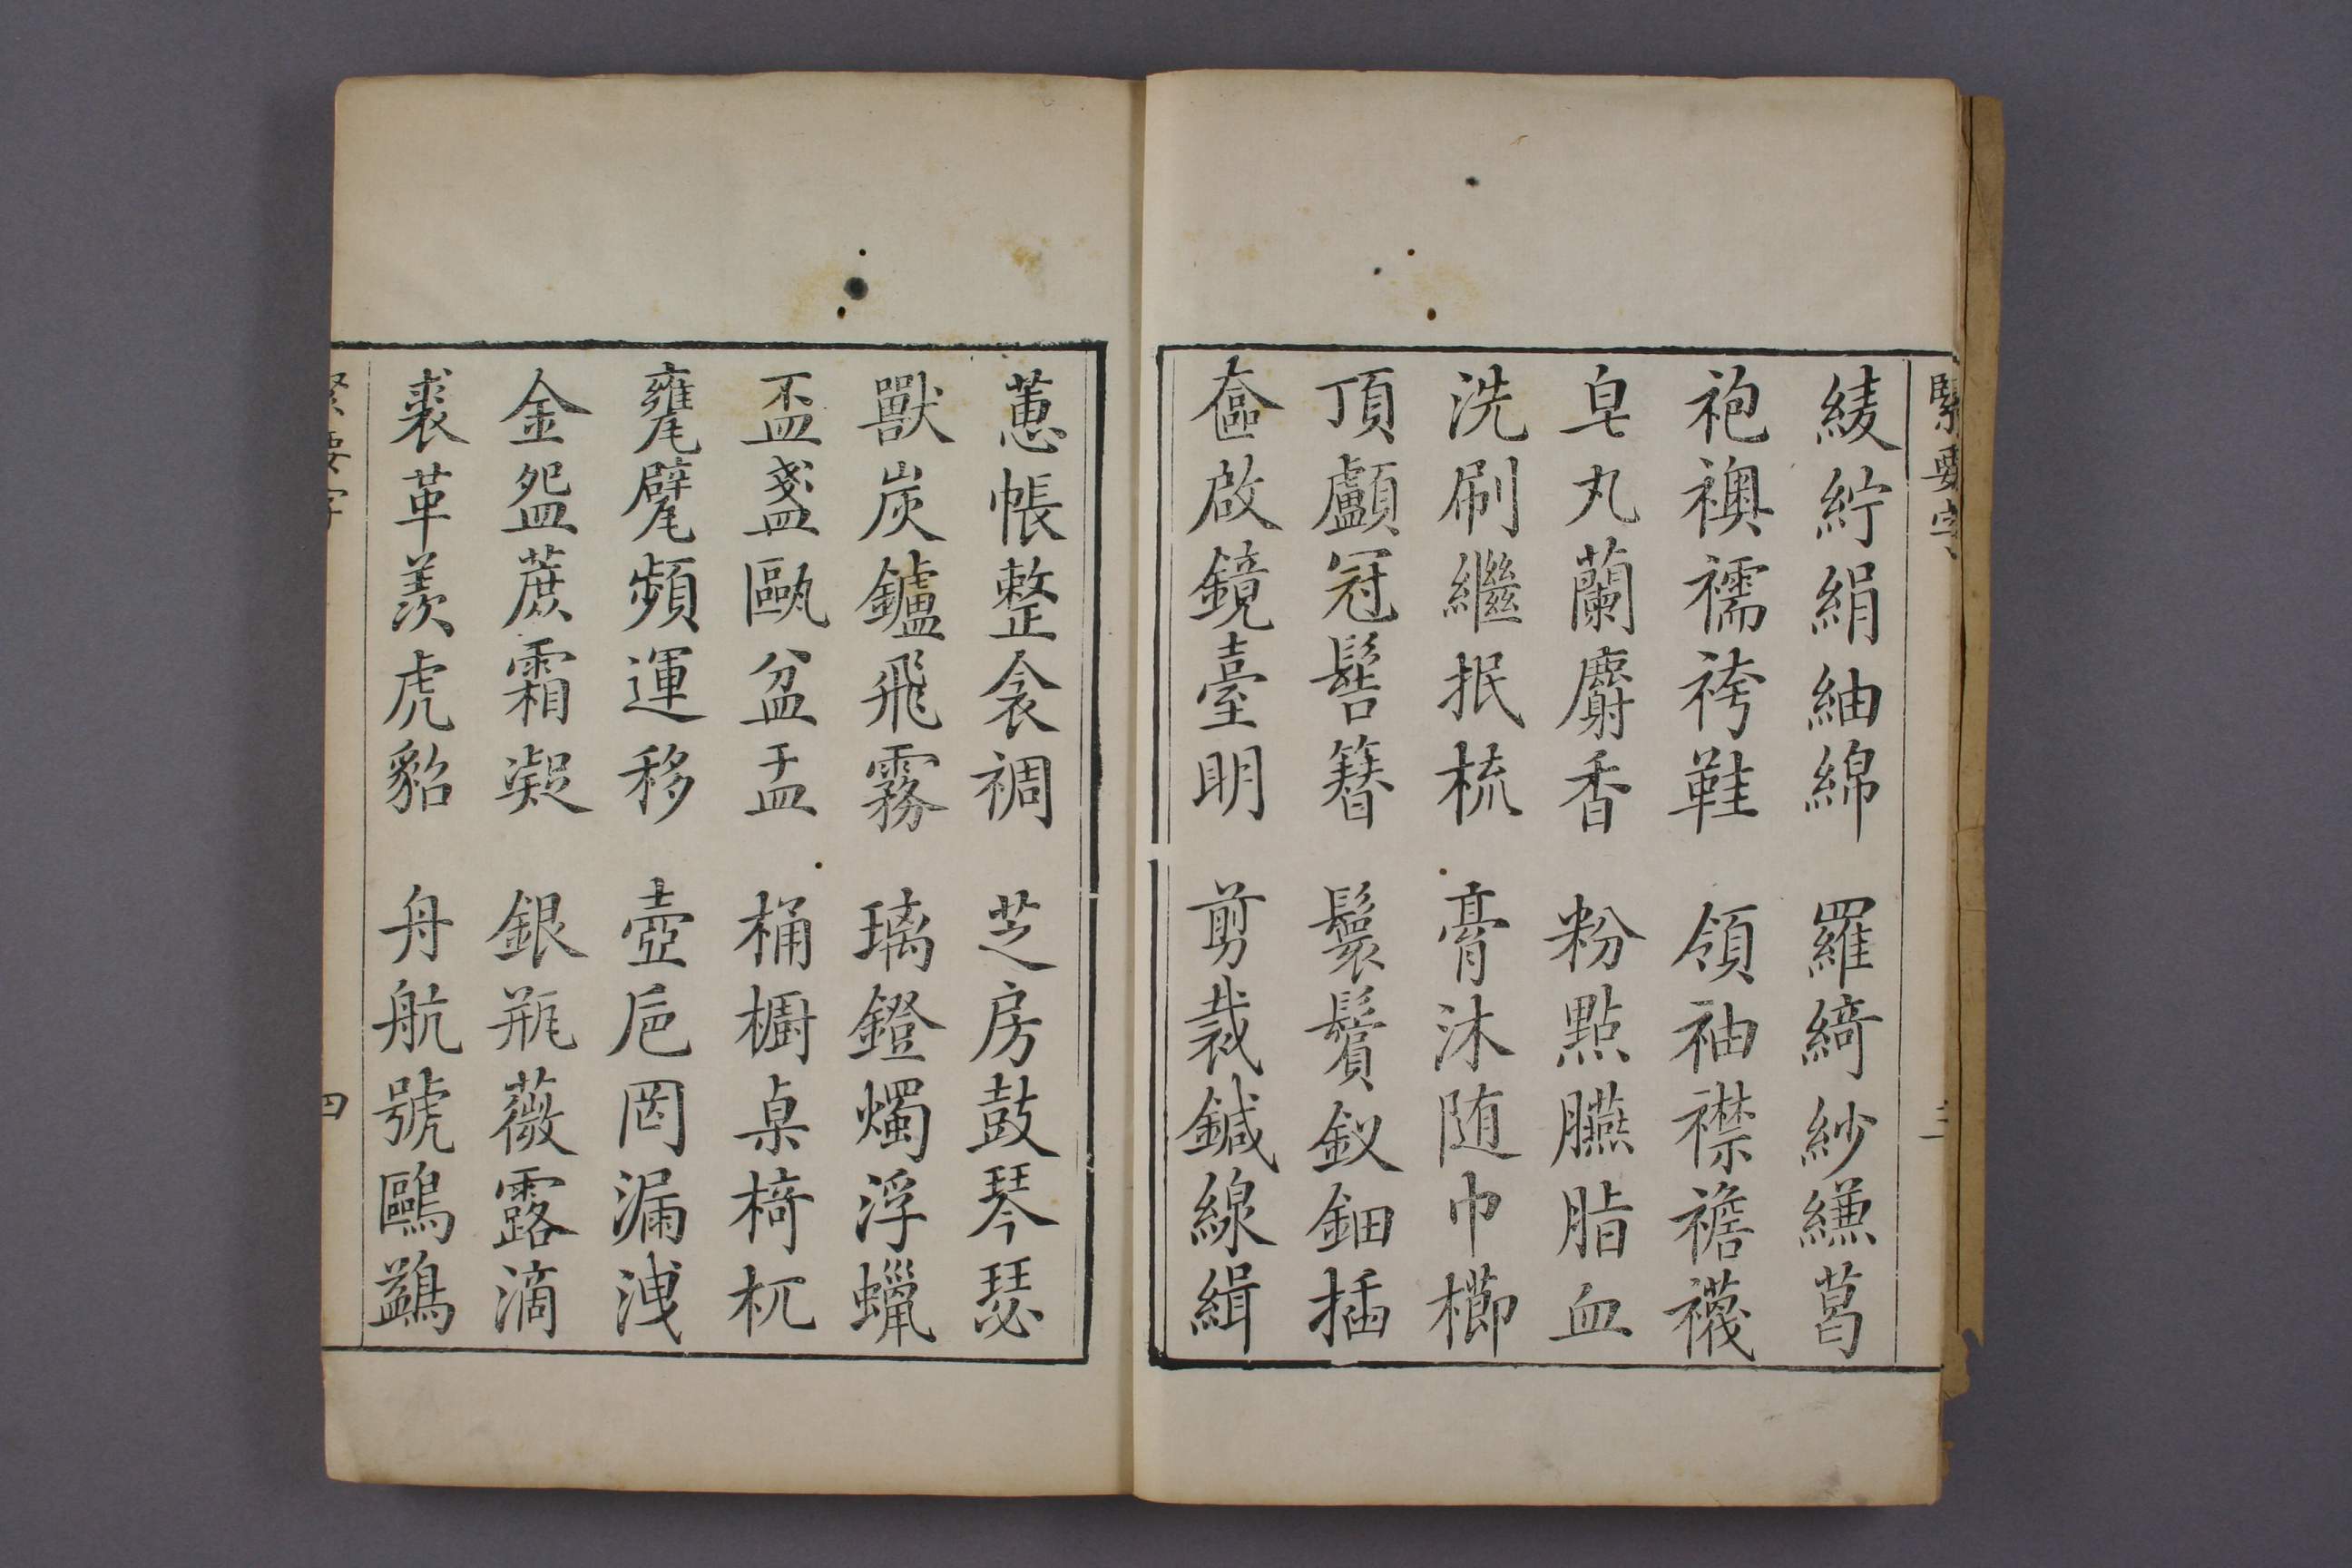 緊要字
三
綾紵絹紬綿 羅綺紗縑葛
袍襖襦袴鞋 領袖襟襜襪
皂丸蘭麝香 粉點臙脂血
洗刷繼抿梳 膏沐随巾櫛
頂顱冠髻簪 鬟鬢釵鈿插
奩啟鏡臺明 剪裁鍼線緝
蕙帳整衾裯 芝房鼓琴瑟
獸炭鑪飛霧 璃鐙燭浮蠟
盃盞甌盆盂 桶櫥桌椅杌
甕甓頻運移 壺巵罔漏洩
金盌蔗霜凝 銀瓶薇露滴
裘革羨虎貂 舟航號鷗鷁
緊要字
四